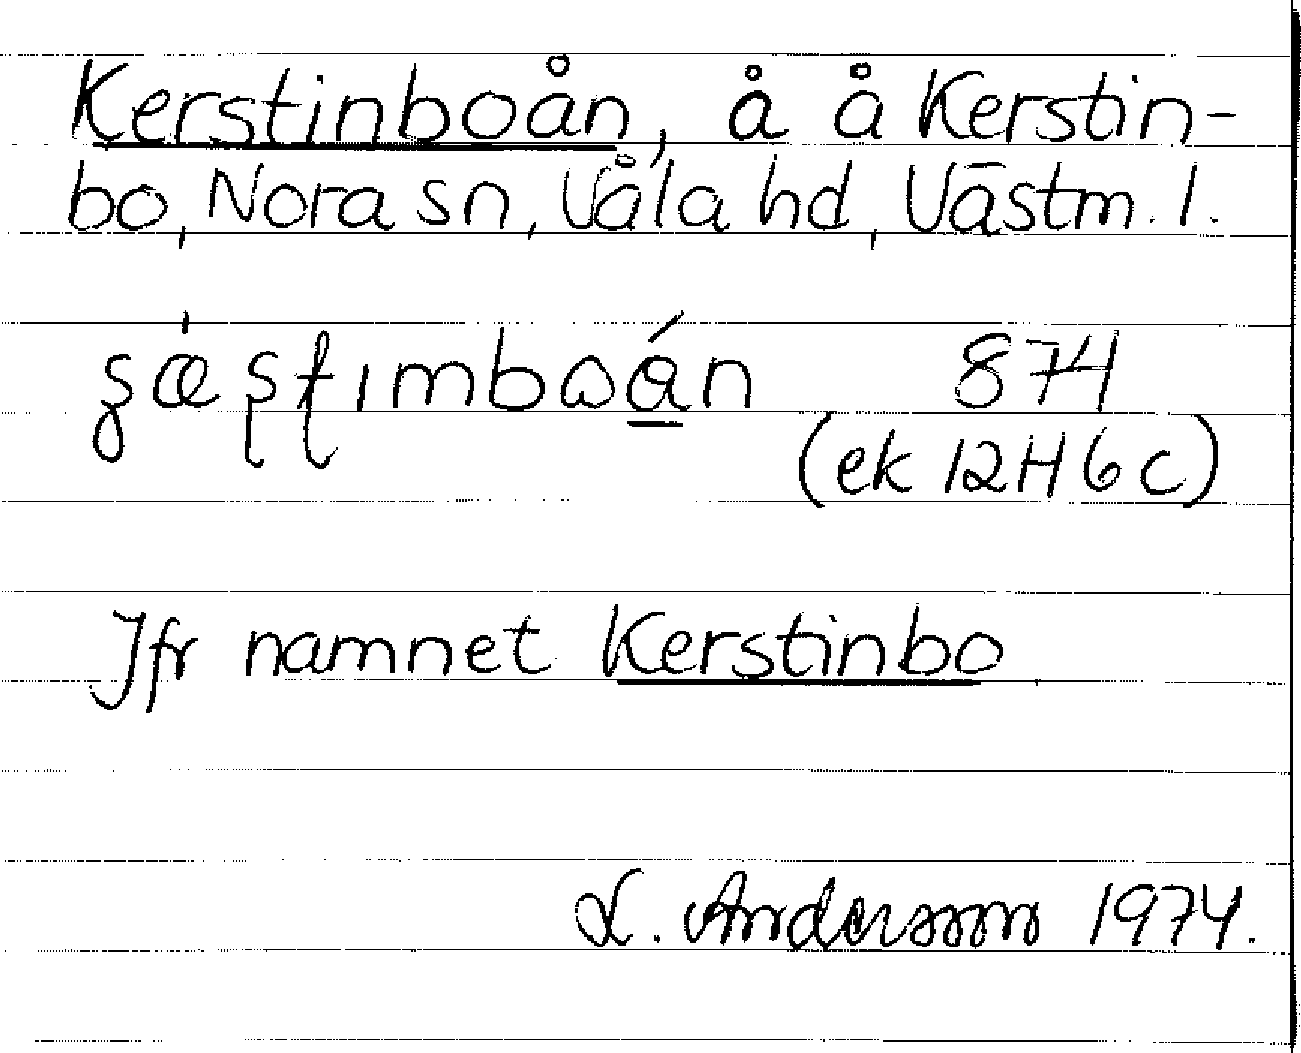 Kerstinboån, å å Kerstin-
bo, Nora sn, Våla hd, Västm. l.
874
(ek 12H6c)
Jfr namnet Kerstinbo
L. Andersson 1974.